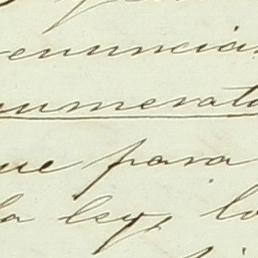 enuncia
numerat
ue para
la ley, lo